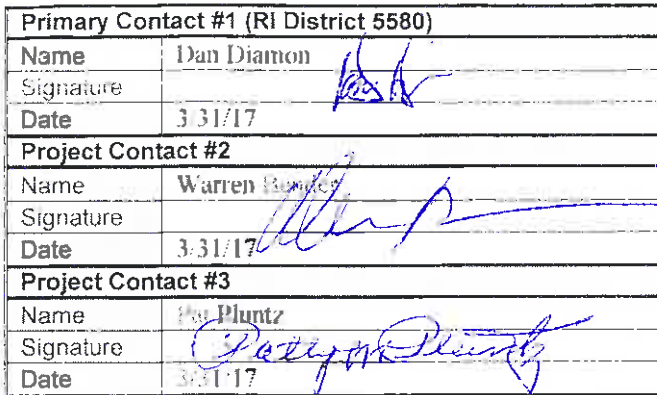 Primary Contact #1 (RI District 5580)
Name Dan Diamon
Signature
Date 3/31/17
Project Contact #2
Name Warren
Signature
Date 3/31/17
Project Contact #3
Name Pluntz
Signature Pluntz
Date 3/31/17